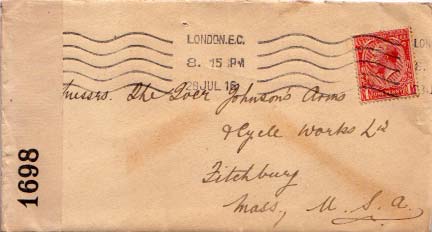 LONDON. E.C.
8. 15 PM
29 JUL 16
Messrs. The Iver Johnson's Arms
& Cycle Works Ld
Fitchburg
Mass, U. S. A.
1698